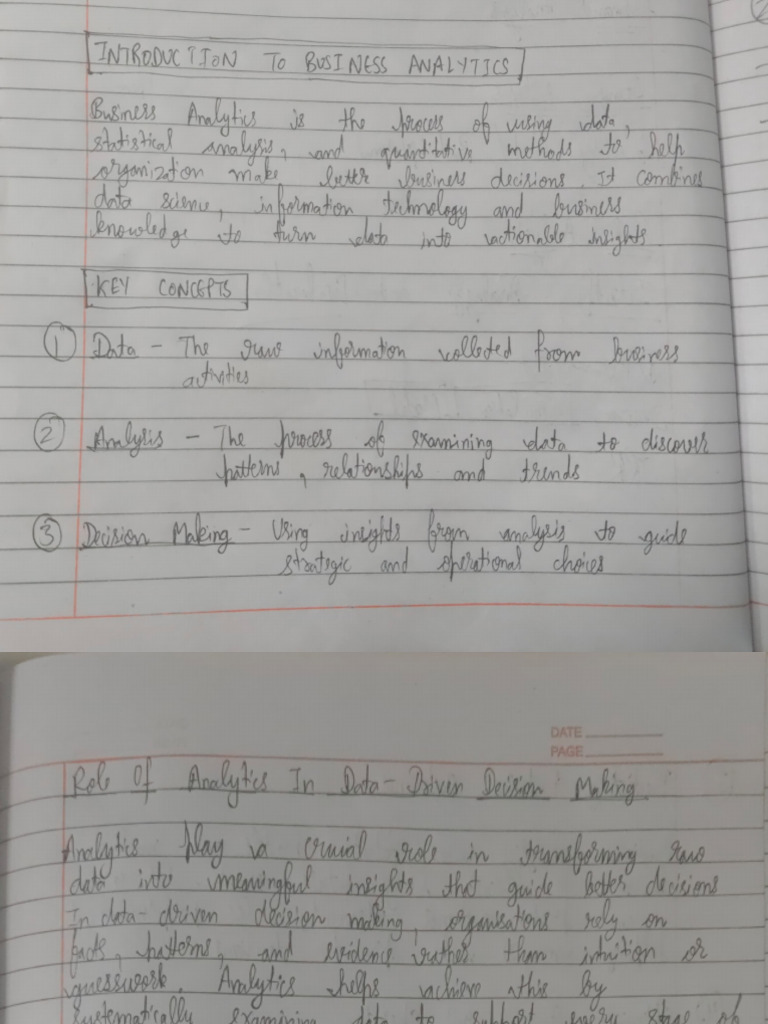 INTRODUCTION TO BUSINESS ANALYTICS
Business Analytics is the process of using data,
statistical analysis, and quantitative methods to help
organization make better business decisions. It combines
data science, information technology and business
knowledge to turn data into actionable insights
KEY CONCEPTS
① Data - The raw information collected from business
activities
② Analysis - The process of examining data to discover
patterns, relationships and trends
③ Decision Making - Using insights from analysis to guide
strategic and operational choices
DATE
PAGE
Role Of Analytics In Data-Driven Decision Making
Analytics play a crucial role in transforming raw
data into meaningful insights that guide better decisions
In data-driven decision making, organisations rely on
facts, patterns, and evidence rather than intuition or
guesswork. Analytics helps achieve this by
systematically examining data to support every stage of